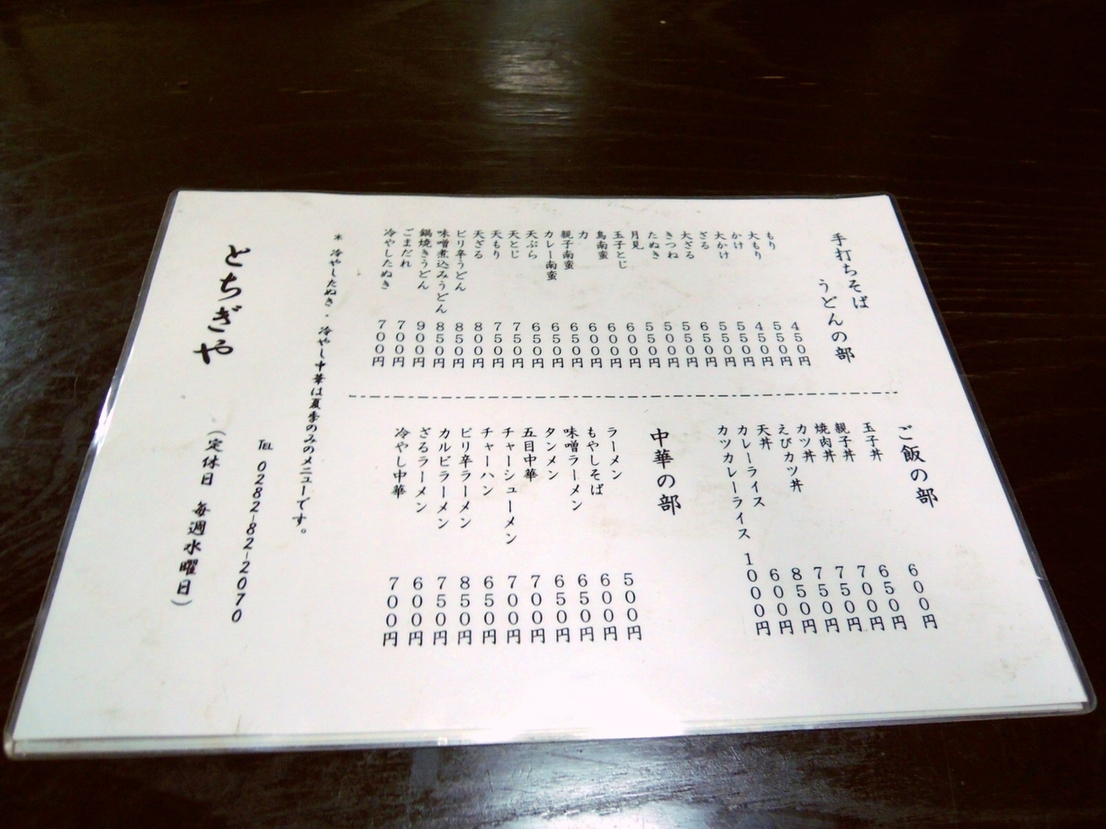 手打ちそば
うどんの部
もり 450円
大もり 550円
かけ 450円
大かけ 550円
ざる 550円
大ざる 650円
きつね 550円
たぬき 550円
月見 550円
玉子とじ 600円
鳥南蛮 600円
力 600円
親子南蛮 650円
カレー南蛮 650円
天ぷら 650円
天とじ 750円
天もり 750円
天ざる 800円
ピリ辛うどん 850円
味噌煮込みうどん 850円
鍋焼きうどん 900円
ごまだれ 700円
冷やしたぬき 700円
ご飯の部
玉子丼 600円
親子丼 650円
焼肉丼 700円
カツ丼 750円
えびカツ丼 750円
天丼 850円
カレーライス 600円
カツカレーライス 1000円
中華の部
ラーメン 500円
もやしそば 600円
味噌ラーメン 650円
タンメン 650円
五目中華 700円
チャーシューメン 700円
チャーハン 650円
ピリ辛ラーメン 850円
カルビラーメン 750円
ざるラーメン 600円
冷やし中華 700円
※ 冷やしたぬき・冷やし中華は夏季のみのメニューです。
とちぎや
TEL 0282-82-2070
（定休日 毎週水曜日）